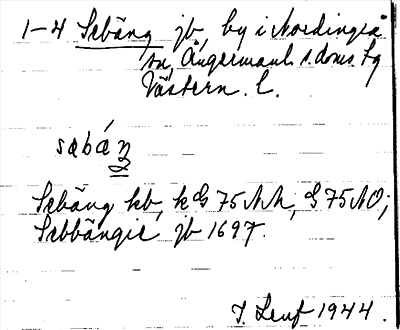 1-4 Sebäng jb, by i Nordingrå
sn, Ångermanl. s. doms. fg
Västern. l.
sæbáŋ
Sebäng kb, k GS 75 NM, GS 75 NO;
Sebbängie jb 1697.
T. Leuf 1944.